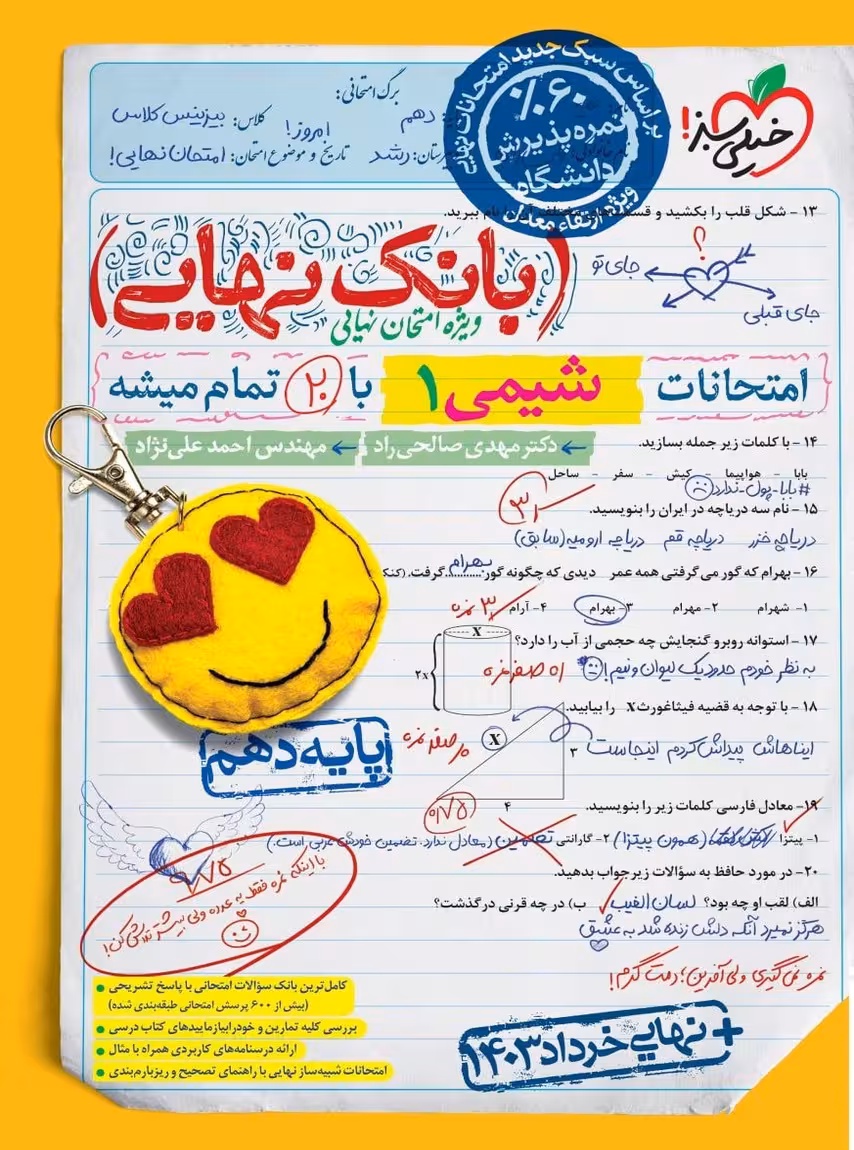 خیلی سبز!
بر اساس سبک جدید امتحانات نهایی
٪۶۰
نمره پذیرش
دانشگاه
ویژه ارتقاء معدل
برگ امتحانی:
دهم
کلاس: بیزینس کلاس
رشد
تاریخ و موضوع امتحان: امروز! امتحان نهایی!
۱۳ - شکل قلب را بکشید و قسمت‌های مختلف آن را نام ببرید.
؟
جای تو
جای قبلی
(بانک نهایی)
ویژه امتحان نهایی
امتحانات شیمی ۱ با ۲۰ تمام میشه
دکتر مهدی صالحی‌راد ← مهندس احمد علی‌نژاد ←
۱۴ - با کلمات زیر جمله بسازید.
بابا - هواپیما - کیش - سفر - ساحل
#بابا-پول-ندارد
۱۵ - نام سه دریاچه در ایران را بنویسید.
دریاچه خزر دریاچه قم دریاچه ارومیه (سابق)
۱۶ - بهرام که گور می‌گرفتی همه عمر دیدی که چگونه گور بهرام گرفت.
۱- شهرام ۲- مهرام ۳- بهرام ۴- آرام
۳ نمره
۱۷ - استوانه روبرو گنجایش چه حجمی از آب را دارد؟
X
۲x
به نظر خودم حدود یک لیوان و نیم!
صفر نمره
۱۸ - با توجه به قضیه فیثاغورث X را بیابید.
ایناهاش پیداش کردم اینجاست
X
۳
۴
صفر نمره
۰/۷۵
پایه دهم
۱۹ - معادل فارسی کلمات زیر را بنویسید.
۱- پیتزا (همون پیتزا) ۲- گارانتی تضمین (معادل ندارد. تضمین خودش عربی است.)
۲۰ - در مورد حافظ به سؤالات زیر جواب بدهید.
الف) لقب او چه بود؟ لسان الغیب ب) در چه قرنی درگذشت؟
هرگز نمیرد آنکه دلش زنده شد به عشق
نمره نمی‌گیری ولی آفرین! دمت گرم!
۹/۷۵
با اینکه نمره فقط یه عدده ولی بیشتر تلاش کن!
کامل‌ترین بانک سؤالات امتحانی با پاسخ تشریحی
(بیش از ۶۰۰ پرسش امتحانی طبقه‌بندی شده)
بررسی کلیه تمارین و خودرابیازمایید‌های کتاب درسی
ارائه درسنامه‌های کاربردی همراه با مثال
امتحانات شبیه‌ساز نهایی با راهنمای تصحیح و ریزبارم‌بندی
+ نهایی خرداد ۱۴۰۳